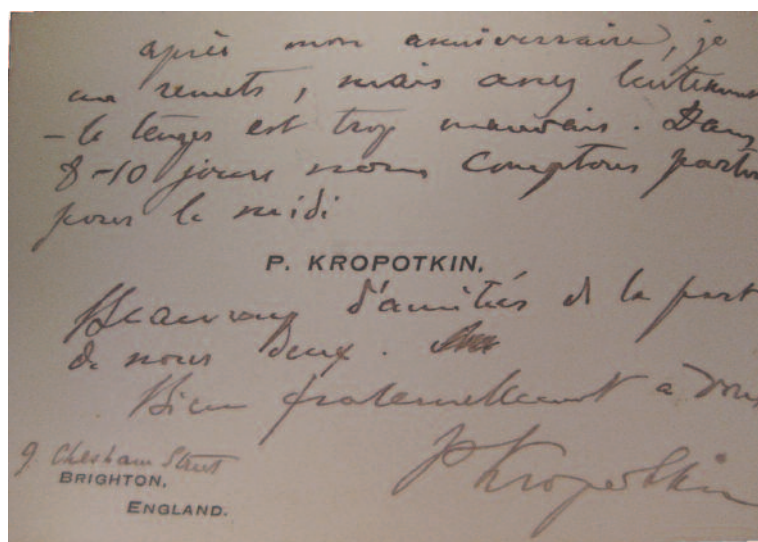 après mon anniversaire, je
me remets, mais assez lentement
– le temps est trop mauvais. Dans
8-10 jours nous comptons partir
pour le midi
P. KROPOTKIN.
Beaucoup d'amitiés de la part
de nous deux.
Bien fraternellement à vous
P Kropotkin
9 Chesham Street
BRIGHTON,
ENGLAND.